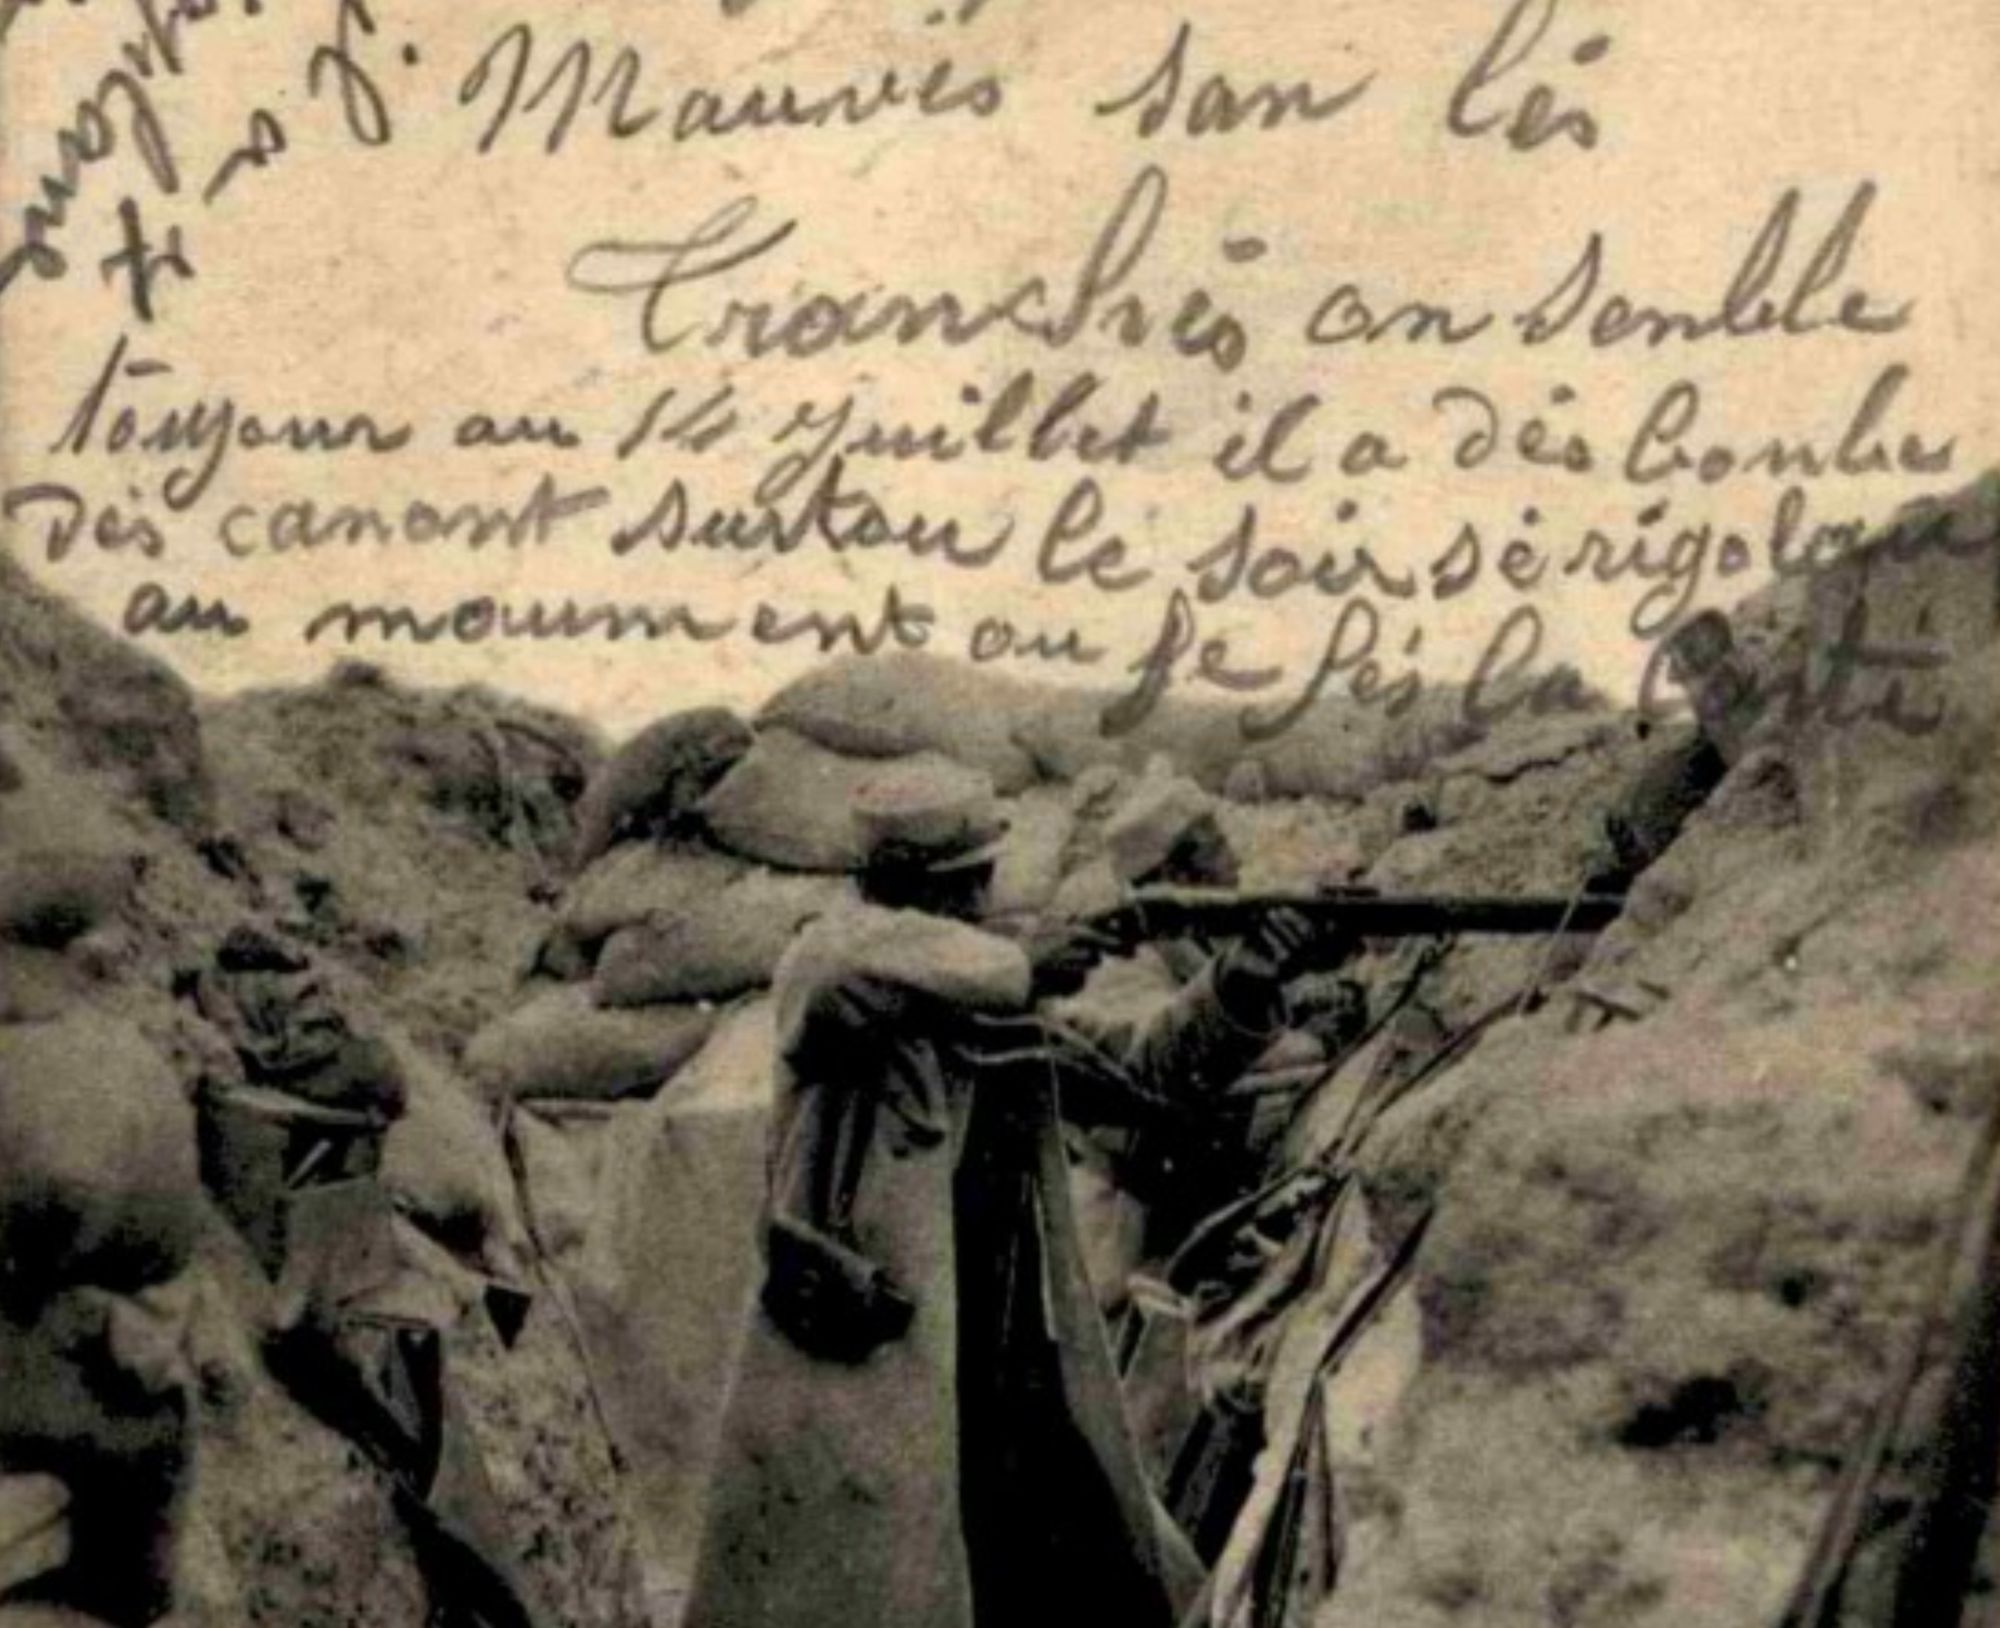 Mauvės san lés
Tranchés on senblle
toujour au 14 Juillet il a dés bonbe
Dés canont surtou le soir sé rigolau
au moument ou Je fés la Carte